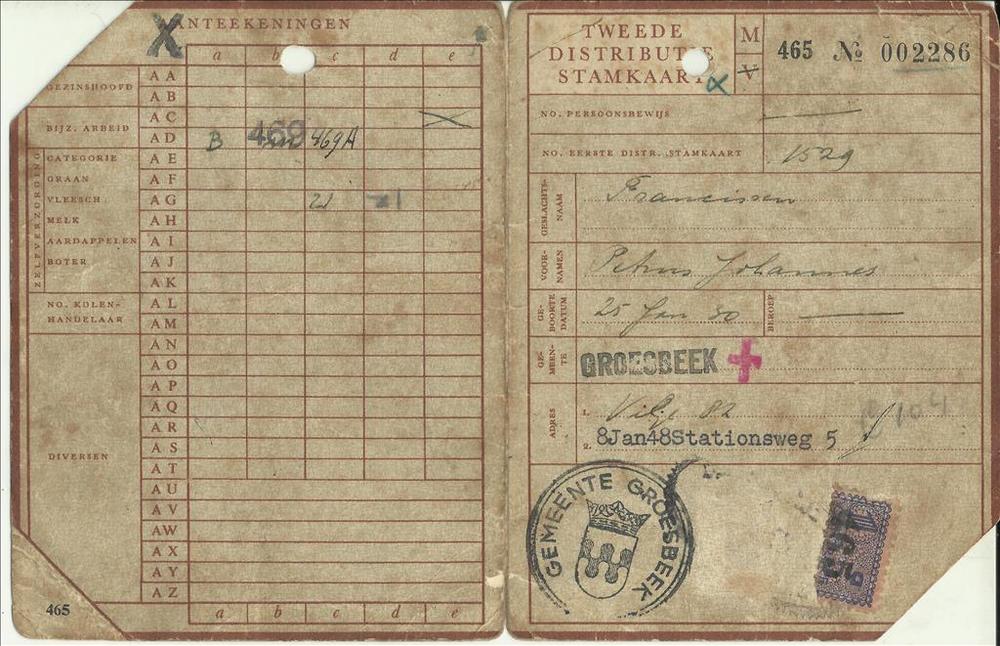 X
AANTEEKENINGEN
a b c d e
GEZINSHOOFD
A A
A B
BIJZ. ARBEID
A C X
A D B 469 469A
ZELFVERZORGING
CATEGORIE A E
GRAAN A F
VLEESCH A G 21
MELK A H
AARDAPPELEN A I
BOTER A J
A K
NO. KOLEN-
HANDELAAR
A L
A M
A N
A O
A P
A Q
A R
DIVERSEN
A S
A T
A U
A V
AW
A X
A Y
A Z
a b c d e
465
TWEEDE
DISTRIBUTIE
STAMKAART
M
V
465 No 002286
NO. PERSOONSBEWIJS
NO. EERSTE DISTR. STAMKAART 1529
GESLACHTS-
NAAM
Francissen
VOOR-
NAMEN
Petrus Johannes
GE-
BOORTE
DATUM
25 Jan 30
BEROEP
GE-
MEEN-
TE
GROESBEEK
ADRES
1. 82
2. 8Jan48Stationsweg 5
GEMEENTE GROESBEEK